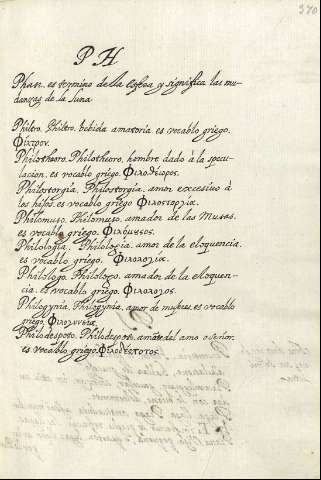 370
P H
Phan. es termino de la Esfera y significa las mu-
danzas de la Luna
Philtro. Philtro. bebida amatoria es vocablo griego.
Φίλτρον.
Philotheoro. Philotheoro, hombre dado à la specu-
lacion. es vocablo griego Φιλοθεωρος.
Philostorgia. Philostorgia. amor excessivo à
los hijos. es vocablo griego Φιλοστοργία.
Philomuso. Philomuso. amador de las Musas.
es vocablo griego. Φιλόμυσος.
Philologia. Philologia. amor de la eloquencia.
es vocablo griego. Φιλολογία.
Philologo. Philologo. amador de la eloquen-
cia. es vocablo griego. Φιλόλογος.
Philogynia. Philogynia. amor de mujeres. es vocablo
griego. Φιλογυνεία.
Philodespoto. Philodespoto. amãte del amo o Señor.
es vocablo griego. Φιλοδέσποτος.